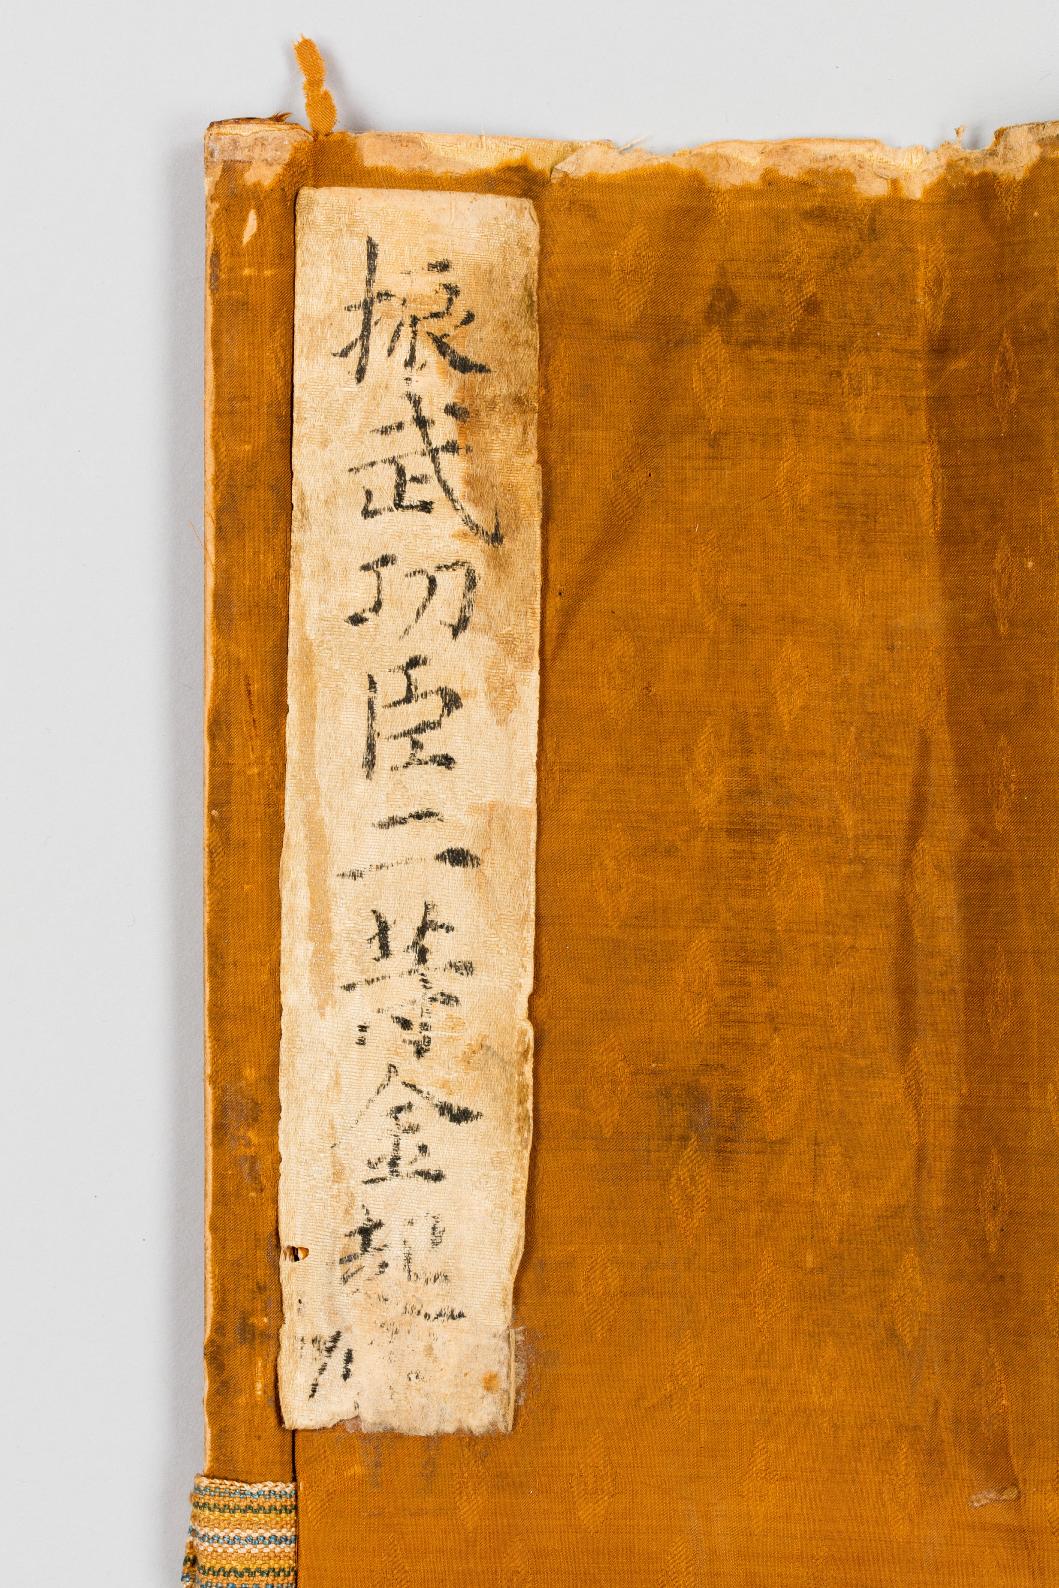 振武功臣二等金起